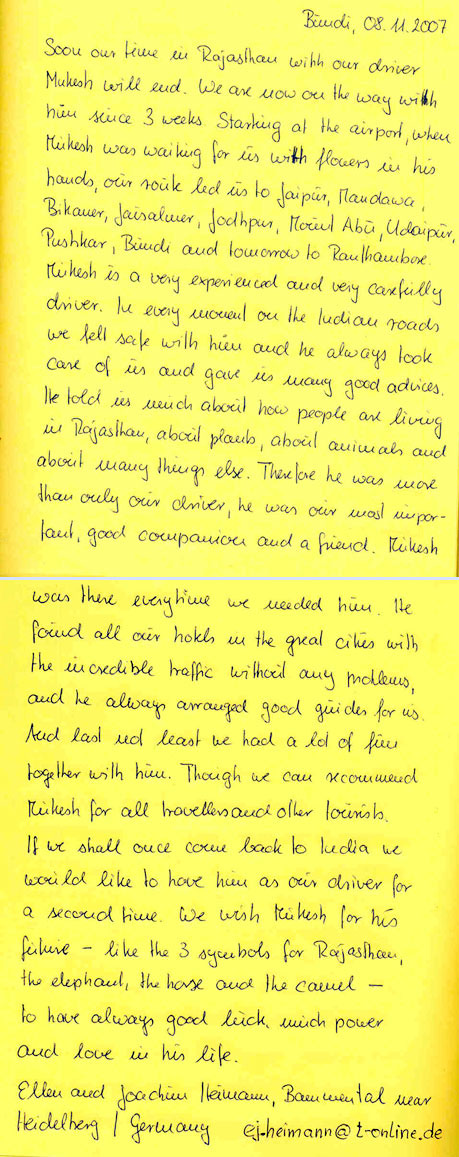 Bundi, 08.11.2007
Soon our time in Rajasthan with our driver
Mukesh will end. We are now on the way with
him since 3 weeks. Starting at the airport, when
Mukesh was waiting for us with flowers in his
hands, our route led us to Jaipur, Mandawa,
Bikaner, Jaisalmer, Jodhpur, Mount Abu, Udaipur,
Pushkar, Bundi and tomorrow to Ranthambore.
Mukesh is a very experienced and very carefully
driver. In every moment on the Indian roads
we felt safe with him and he always took
care of us and gave us many good advices.
He told us much about how people are living
in Rajasthan, about plants, about animals and
about many things else. Therefore he was more
than only our driver, he was our most impor-
tant, good companion and a friend. Mukesh
was there everytime we needed him. He
found all our hotels in the great cities with
the incredible traffic without any problems,
and he always arranged good guides for us.
And last not least we had a lot of fun
together with him. Though we can recommend
Mukesh for all travellers and other tourists.
If we shall once come back to India we
would like to have him as our driver for
a second time. We wish Mukesh for his
future – like the 3 symbols for Rajasthan,
the elephant, the horse and the camel –
to have always good luck, much power
and love in his life.
Ellen and Joachim Heimann, Bammental near
Heidelberg / Germany ej.heimann@t-online.de